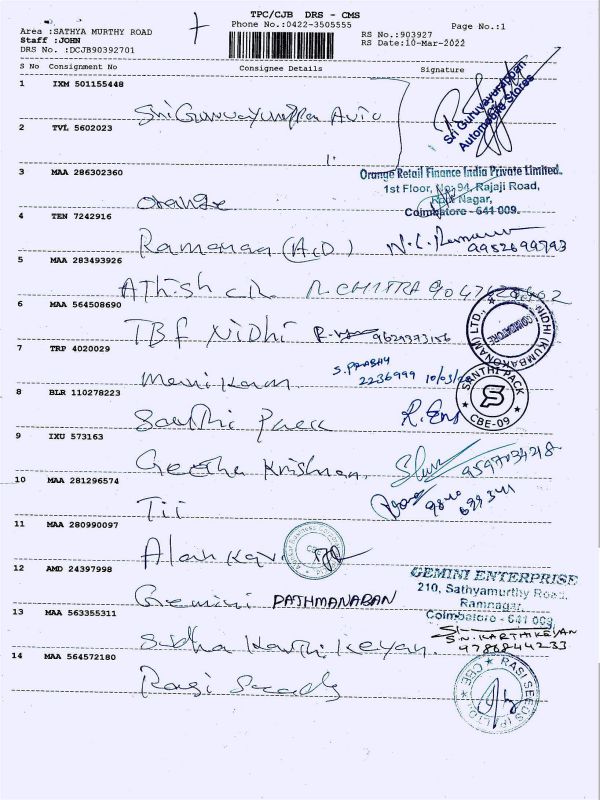 TPC/CJB DRS - CMS
Phone No.:0422-3505555
Page No.:1
Area :SATHYA MURTHY ROAD
Staff :JOHN
DRS No. :DCJB90392701
RS No.:903927
RS Date:10-Mar-2022
S No Consignment No Consignee Details Signature
1 IXM 501155448
Sri Guruvayurappan
Automobile Stores
2 TVL 5602023
3 MAA 286302360
Orange Retail Finance India Private Limited.
1st Floor, No: 94, Rajaji Road,
Ram Nagar,
Coimbatore - 641 009.
Orange
4 TEN 7242916
Ramanaa (A/D)
5 MAA 283493926
Athish CR R. CHITRA
6 MAA 564508690
TBF Nidhi
NIDHI (KUMBAKONAM) LTD.,
COIMBATORE
7 TRP 4020029
S. PRABHU
2236999 10/03/22
Manikam
8 BLR 110278223
SANTHI PACK
CBE-09
Santhi Pack
9 IXU 573163
Geetha Krishnan. 9597034218
10 MAA 281296574
Tii
11 MAA 280990097
12 AMD 24397998
GEMINI ENTERPRISE
210, Sathyamurthy Road,
Ramnagar,
Coimbatore - 641 009
Gemini PATHMANABAN
13 MAA 563355311
S.N. KARTHIKEYAN
9786844233
Sudha Karthikeyan.
14 MAA 564572180
RASI SEEDS (P) LTD.
CBE
Rasi Seeds